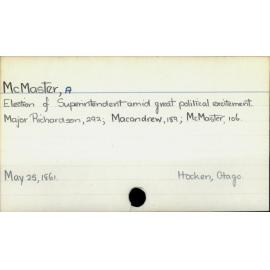 McMaster, A
Election of Superintendent amid great political excitement.
Major Richardson, 292; Macandrew, 189; McMaster, 106.
May 25, 1861. Hocken, Otago.